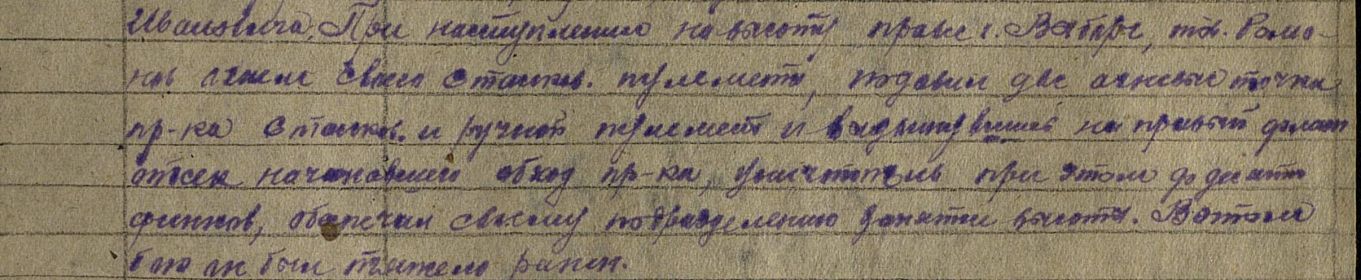 Ивановича. При наступлении на высоту правее г. Выборг, тов. Рома-
нов огнем своего станков. пулемета, подавил две огневые точки
пр-ка станков. и ручной пулемет и выдвинувшись на правый фланг
отсек начинавшего обход пр-ка, уничтожив при этом до десяти
финнов, обеспечил своему подразделению занятие высоты. В этом
бою он был тяжело ранен.